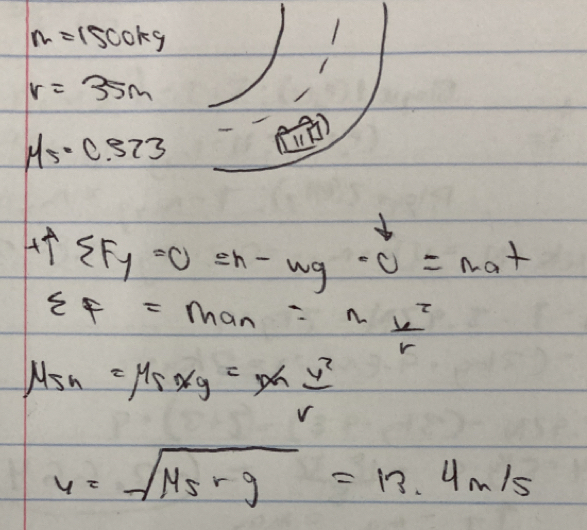 m = 1500kg
r = 35m
μs = 0.523
+↑ ΣFy = 0 = n - wg = 0 = mat
ΣF = man = m v²/r
μsn = μsmg = m v²/r
v = √μsrg = 13.4m/s